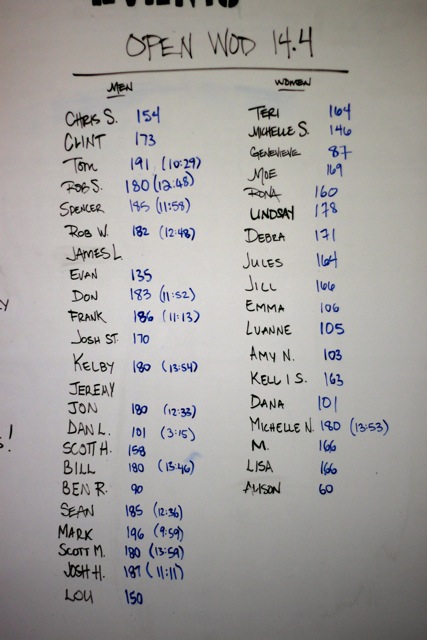 EVENTS
OPEN WOD 14.4
MEN
CHRIS S. 154
CLINT 173
TOM 191 (10:29)
ROB S. 180 (12:48)
SPENCER 185 (11:58)
ROB W. 182 (12:48)
JAMES L
EVAN 135
DON 183 (11:52)
FRANK 186 (11:13)
JOSH ST. 170
KELBY 180 (13:54)
JEREMY
JON 180 (12:33)
DAN L. 101 (3:15)
SCOTT H. 158
BILL 180 (13:46)
BEN R. 90
SEAN 185 (12:36)
MARK 196 (9:59)
SCOTT M. 180 (13:59)
JOSH H. 187 (11:11)
LOU 150
WOMEN
TERI 164
MICHELLE S. 146
GENEVIEVE 87
MOE 169
RONA 160
LINDSAY 178
DEBRA 171
JULES 164
JILL 166
EMMA 106
LUANNE 105
AMY N. 103
KELLI S. 163
DANA 101
MICHELLE N. 180 (13:53)
M. 166
LISA 166
ALISON 60